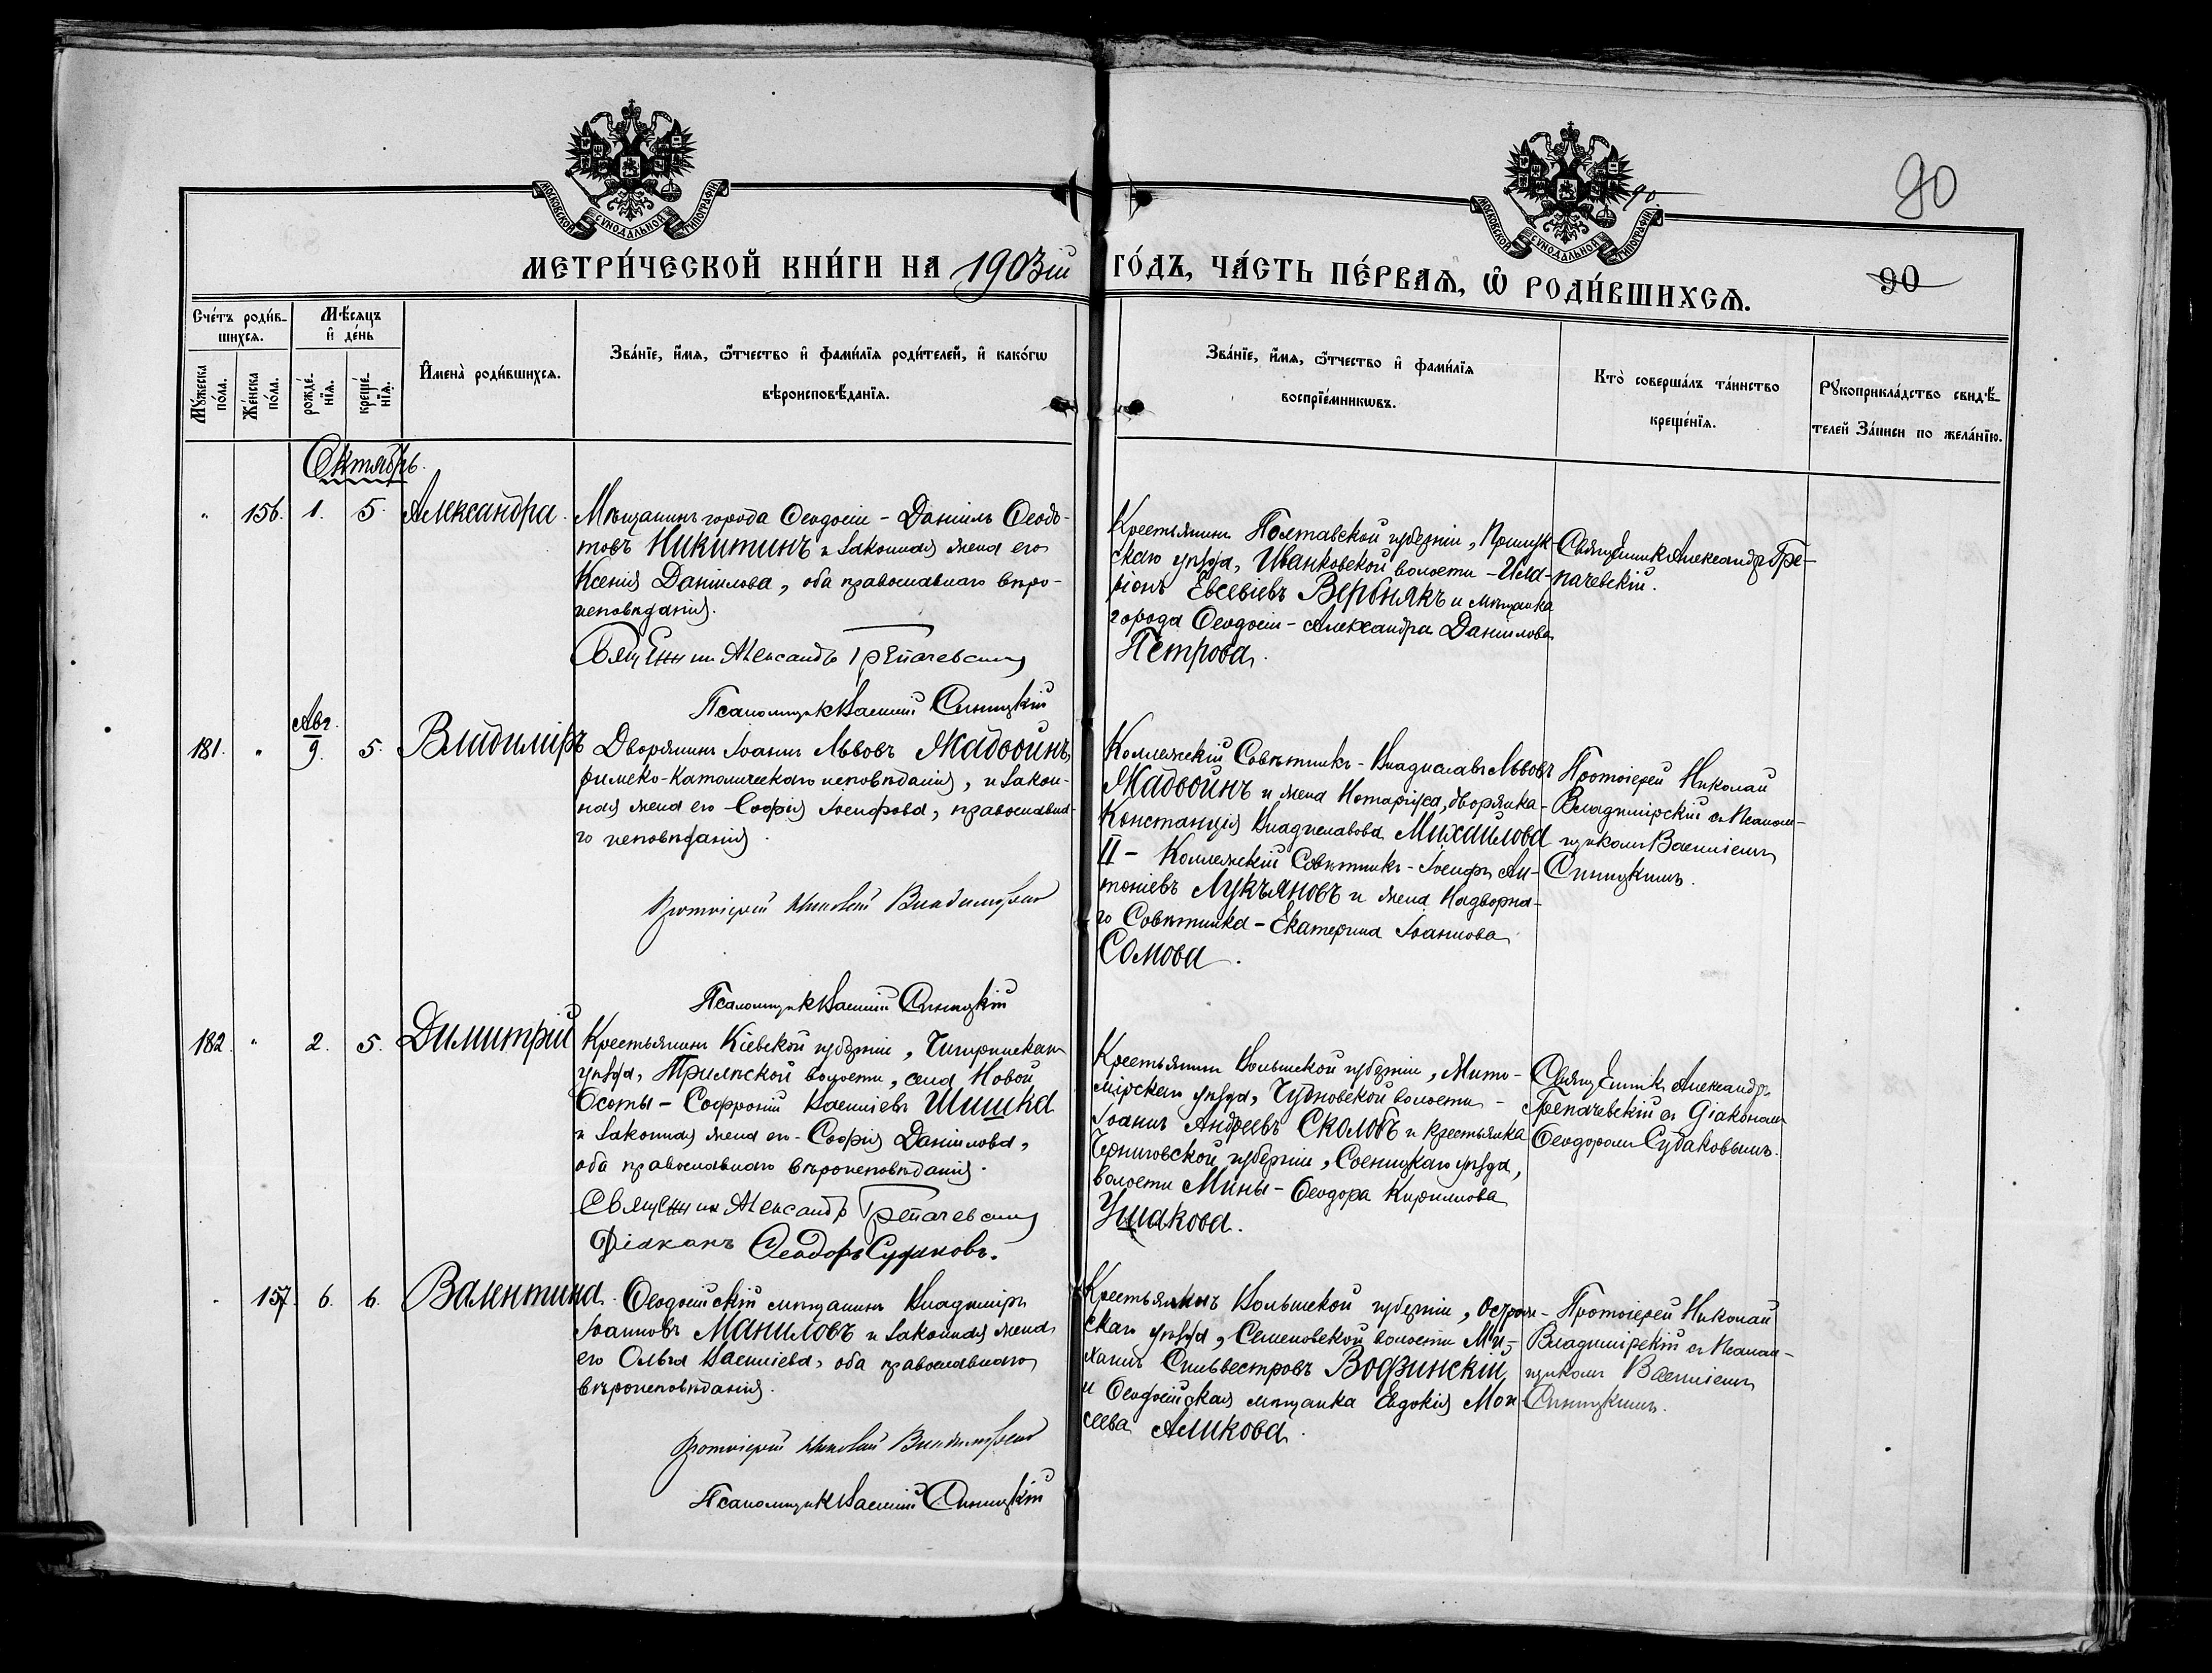 МОСКОВСКОЙ СѴНОДАЛЬНОЙ ТИПОГРАФІИ
МОСКОВСКОЙ СѴНОДАЛЬНОЙ ТИПОГРАФІИ
90.
90
МЕТРИ́ЧЕСКОЙ КНИ́ГИ НА 1903ій ГО́ДЪ, ЧА́СТЬ ПЕ́РВАѦ, Ѡ҆ РОДИ́ВШИХСѦ.
90
Сче́тъ роди́в-
шихсѧ.
Мѣ́сѧцъ
и҆ де́нь
И҆мена̀ роди́вшихсѧ.
Зва́нїе, и҆́мѧ, ѻ҆́тчество и҆ фами́лїѧ роди́телей, и҆ како́гѡ
вѣроисповѣ́данїѧ.
Зва́нїе, и҆́мѧ, ѻ҆́тчество и҆ фами́лїѧ
воспрїе́мникѡвъ.
Кто̀ соверша́лъ та́инство
креще́нїѧ.
Рꙋкоприкла́дство свидѣ́-
телей За́писи по жела́нїю.
Мꙋ́жеска
по́ла.
Же́нска
по́ла.
рожде́-
нїѧ.
креще́-
нїѧ.
Октябрь.
" 156. 1. 5. Александра.
Мѣщанинъ города Ѳеодосіи - Даніилъ Ѳеодо-
товъ Никитинъ и законная жена его
Ксенія Даніилова, оба православнаго вѣро-
исповѣданія.
Священникъ Александръ Трепачевскій
Псаломщикъ Василій Синицкій
Крестьянинъ Полтавской губерніи, Прилук-
скаго уѣзда, Иванковской волости - Ила-
ріонъ Евсевіевъ Вербнякъ и мѣщанка
города Ѳеодосіи - Александра Даніилова
Петрова.
Священникъ Александръ Тре-
пачевскій.
181. " Авг. 9. 5. Владиміръ
Дворянинъ Іоаннъ Львовъ Жабоинъ,
римско-католическаго исповѣданія, и закон-
ная жена его Софія Іосифова, православна-
го исповѣданія.
Протоіерей Николай Владимірскій
Псаломщикъ Василій Синицкій
Коллежскій Совѣтникъ - Владиславъ Львовъ
Жабоинъ и жена Нотаріуса, дворянка -
Констанція Владиславова Михайлова
II - Коллежскій Совѣтникъ - Іосифъ Ан-
тоніевъ Лукъяновъ и жена Надворна-
го Совѣтника - Екатерина Іоаннова
Сомова.
Протоіерей Николай
Владимірскій съ Псалом-
щикомъ Василіемъ
Синицкимъ.
182. " 2. 5. Димитрій
Крестьянинъ Кіевской губерніи, Чигиринскаго
уѣзда, Трилѣсской волости, села Новой
Осоты - Софроній Василіевъ Шишка
и законная жена его - Софія Даніилова,
оба православнаго вѣроисповѣданія.
Священникъ Александръ Трепачевскій
Діаконъ Ѳеодоръ Судаковъ.
Крестьянинъ Волынской губерніи, Жито-
мірскаго уѣзда, Чудновской волости -
Іоаннъ Андреевъ Сколобъ и крестьянка
Черниговской губерніи, Сосницкаго уѣзда,
волости Мины - Ѳеодора Кириллова
Ушакова.
Священникъ Александръ
Трепачевскій съ Діакономъ
Ѳеодоромъ Судаковымъ.
" 157. 6. 6. Валентина.
Ѳеодосійскій мѣщанинъ Владиміръ
Іоанновъ Маниловъ и законная жена
его Ольга Василіева, оба православнаго
вѣроисповѣданія.
Протоіерей Николай Владимірскій
Псаломщикъ Василій Синицкій
Крестьянинъ Волынской губерніи, Острож-
скаго уѣзда, Семеновской волости Ми-
хаилъ Сильвестровъ Водзинскій
и Ѳеодосійская мѣщанка Евдокія Мои-
сеева Аликова.
Протоіерей Николай
Владимірскій съ Псалом-
щикомъ Василіемъ
Синицкимъ.